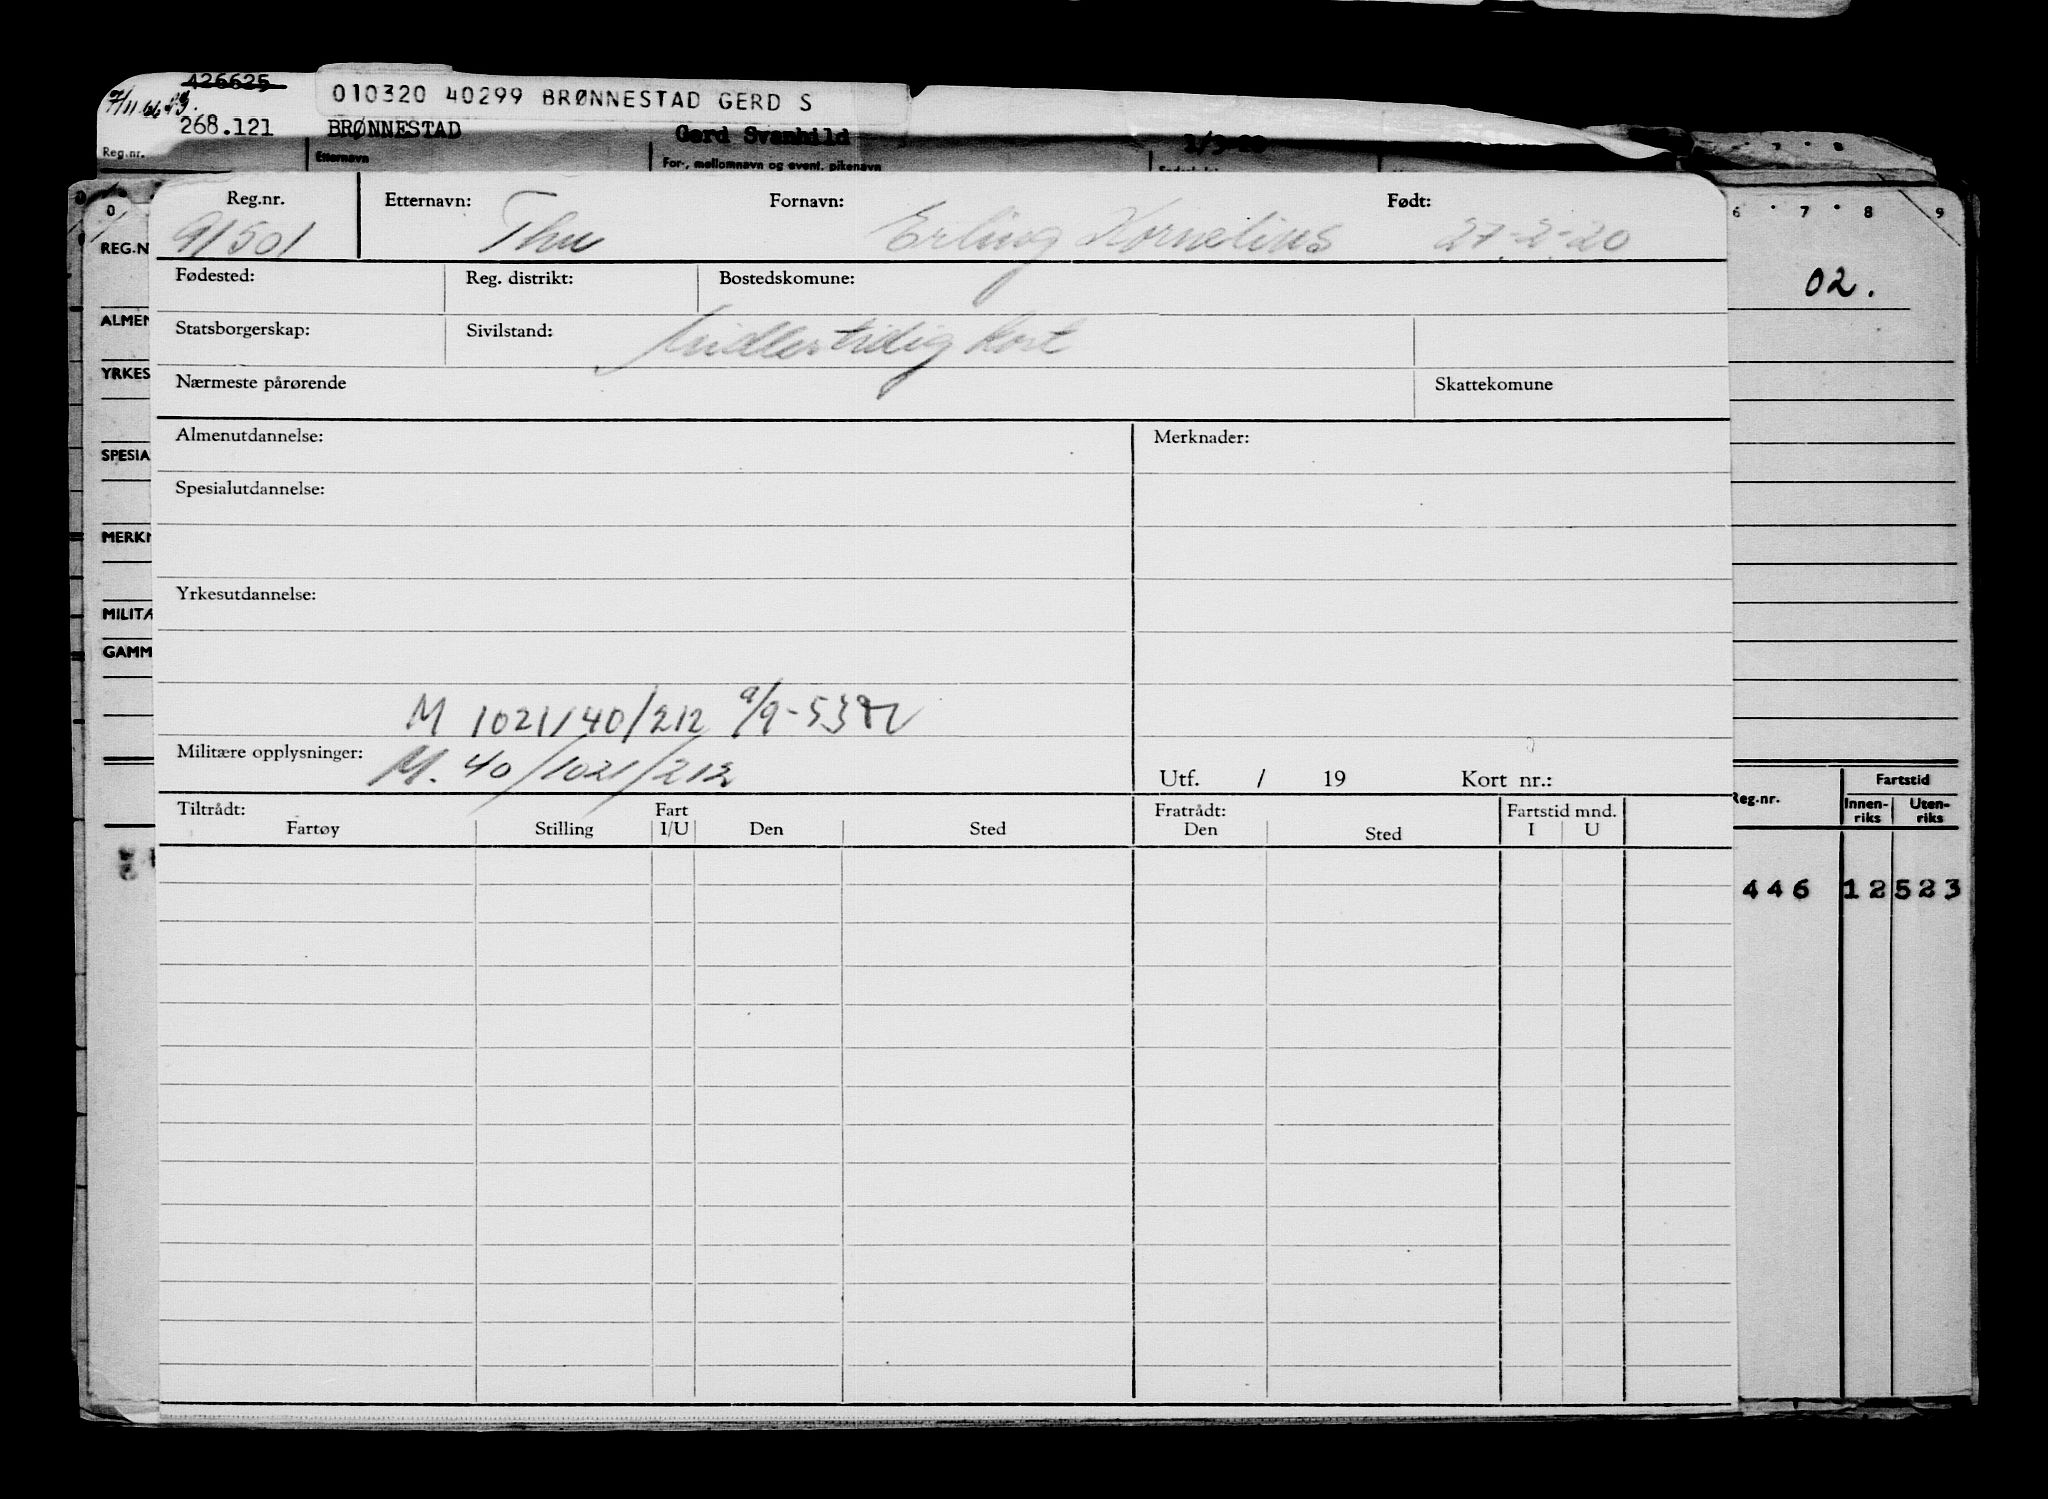 426625
010320 40299 BRØNNESTAD GERD S
268.121 BRØNNESTAD Gerd Svanhild 1/3-20
Reg.nr. Etternavn For-, mellomnavn og event. pikenavn
0 6 7 8 9
Reg.nr. Etternavn: Fornavn: Født:
91501 Thu Erling Kornelius 27-2-20
REG.N
Fødested: Reg. distrikt: Bostedskomune:
02.
ALMEN
Statsborgerskap: Sivilstand: Midlertidig kort
YRKES
Nærmeste pårørende Skattekomune
Almenutdannelse: Merknader:
SPESIA
Spesialutdannelse:
MERKN
Yrkesutdannelse:
MILITÆ
GAMM
M 1021/40/212 9/9-53
Militære opplysninger: M. 40/1021/212
Utf. / 19 Kort nr.:
Reg.nr. Fartstid
Innen-riks Uten-riks
Tiltrådt: Fart Fratrådt: Fartstid mnd.
Fartøy Stilling I/U Den Sted Den Sted I U
446 12 523